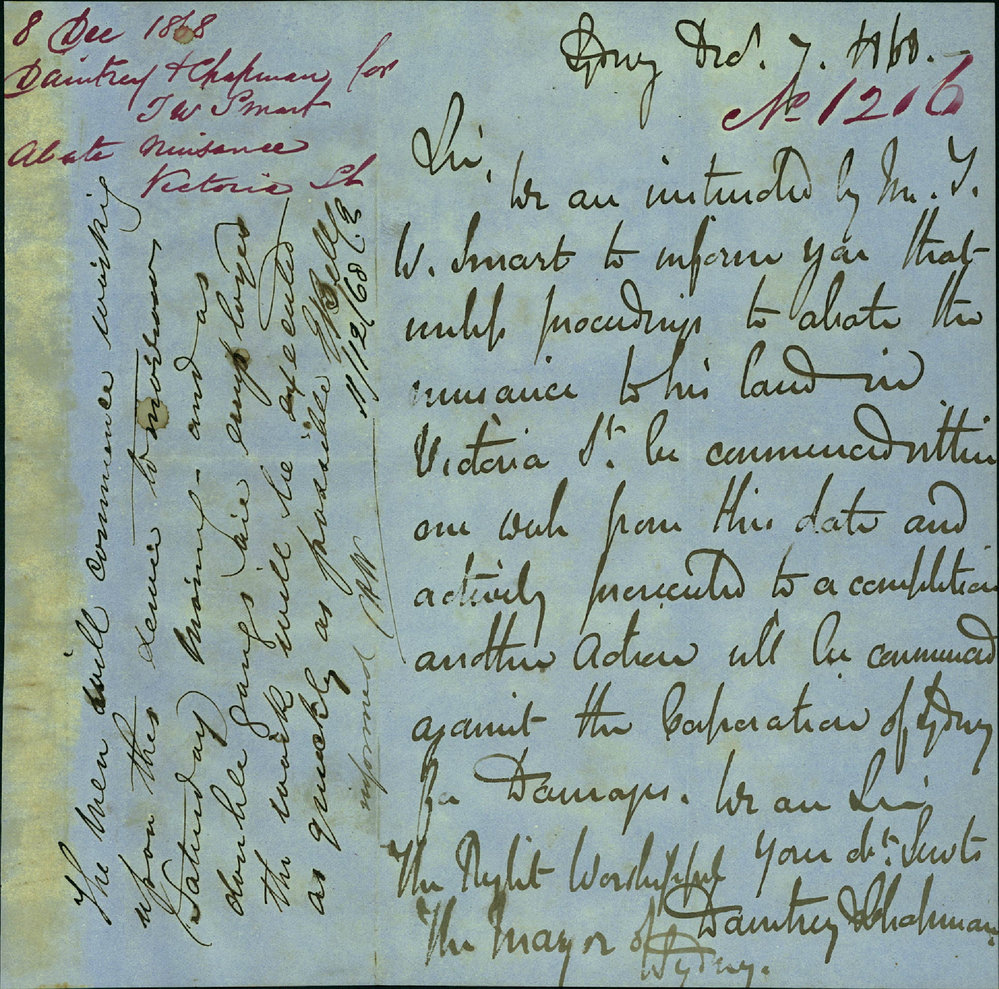 8 Dec 1868
Daintrey & Chapman for
T W Smart
Abate Nuisance
Victoria St
Sydney Decr. 7. 1868.
No 1216
Sir,
We are instructed by Mr. T.
W. Smart to inform you that
unless proceedings to abate the
nuisance to his land in
Victoria St. be commenced within
one week from this date and
actively prosecuted to a completion
another Action will be commenced
against the Corporation of Sydney
for Damages. We are Sir
Your obt. Servts
Daintrey & Chapman
The Right Worshipful
The Mayor of
Sydney.
The Men will commence working
upon this sewer tomorrow
Saturday Morning - and as
double gangs are employed
the work will be executed
as quickly as possible E Bell
11/12/68 C.E
informed